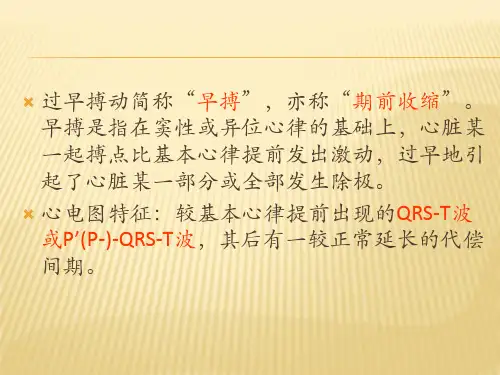 过早搏动简称“早搏”，亦称“期前收缩”。
早搏是指在窦性或异位心律的基础上，心脏某
一起搏点比基本心律提前发出激动，过早地引
起了心脏某一部分或全部发生除极。
心电图特征：较基本心律提前出现的QRS-T波
或P’(P-)-QRS-T波，其后有一较正常延长的代偿
间期。